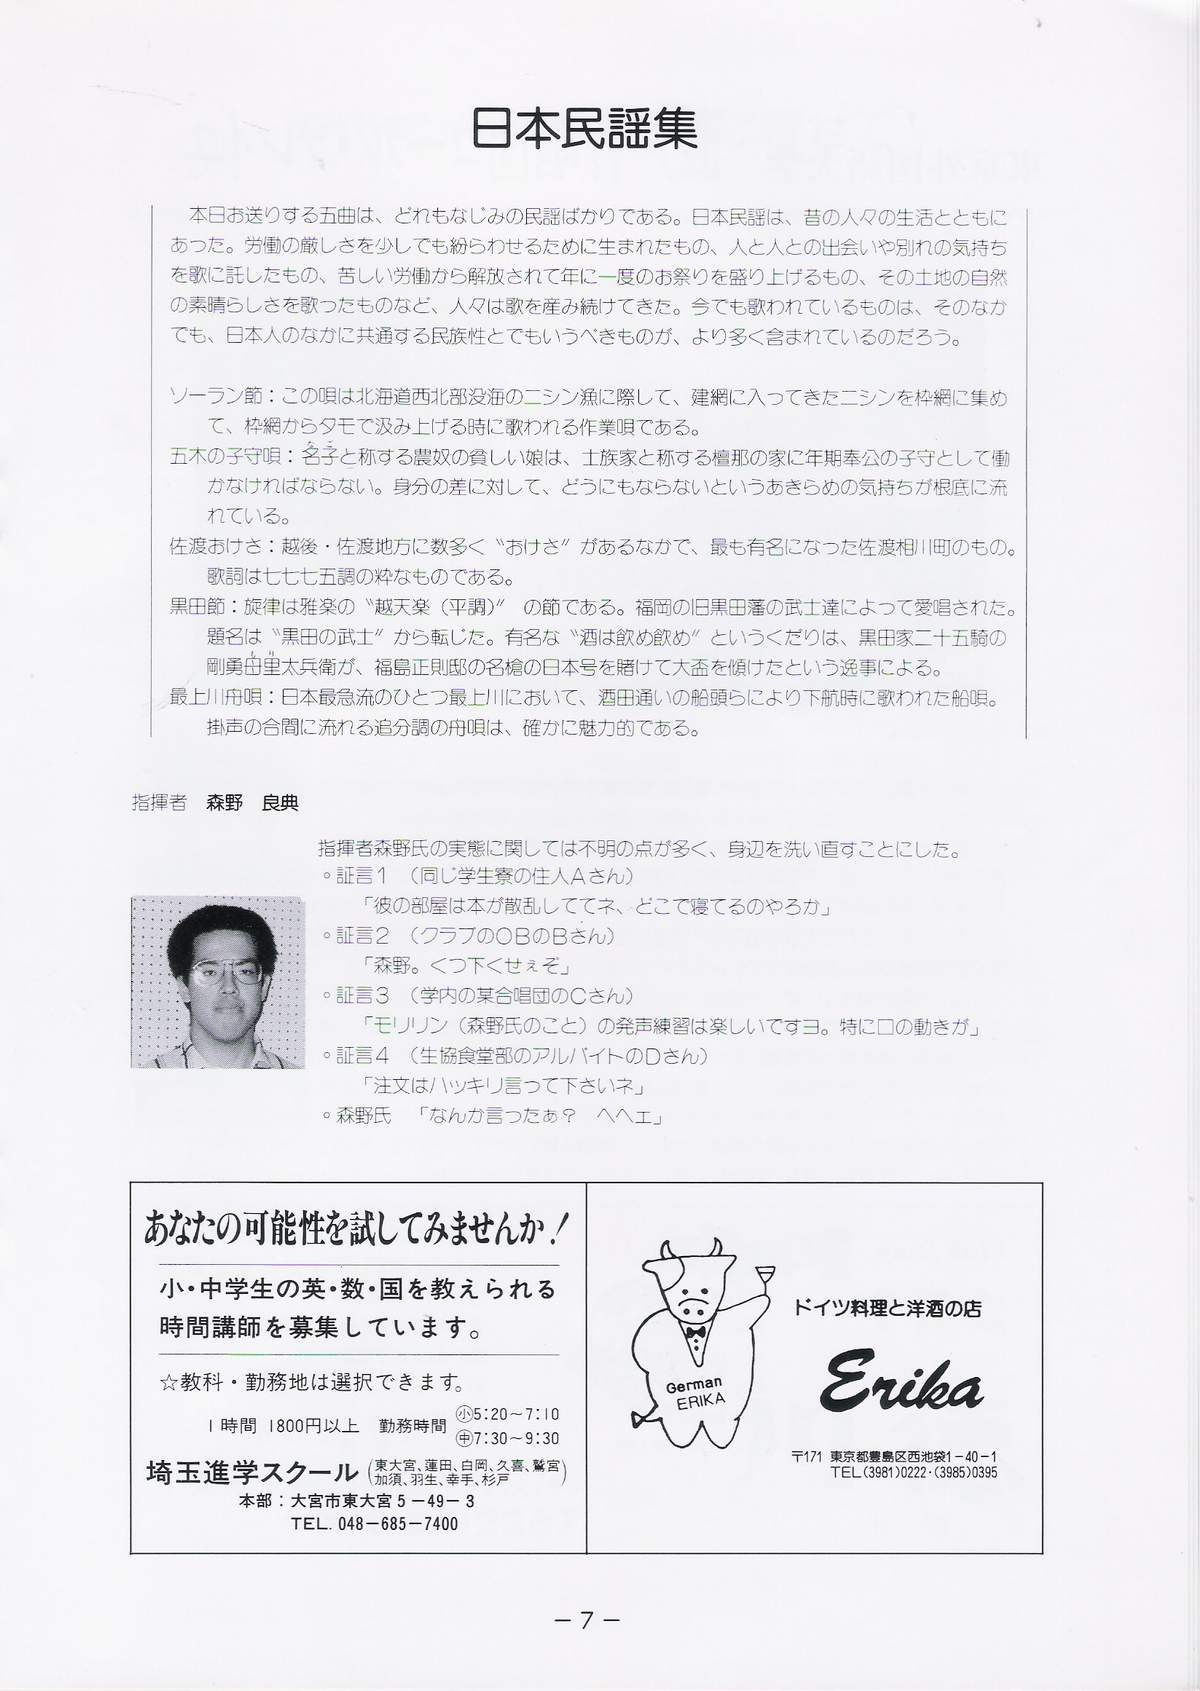 日本民謡集
本日お送りする五曲は、どれもなじみの民謡ばかりである。日本民謡は、昔の人々の生活とともに
あった。労働の厳しさを少しでも紛らわせるために生まれたもの、人と人との出会いや別れの気持ち
を歌に託したもの、苦しい労働から解放されて年に一度のお祭りを盛り上げるもの、その土地の自然
の素晴らしさを歌ったものなど、人々は歌を産み続けてきた。今でも歌われているものは、そのなか
でも、日本人のなかに共通する民族性とでもいうべきものが、より多く含まれているのだろう。
ソーラン節：この唄は北海道西北部没海のニシン漁に際して、建網に入ってきたニシンを枠網に集め
て、枠網からタモで汲み上げる時に歌われる作業唄である。
五木の子守唄：名子と称する農奴の貧しい娘は、士族家と称する檀那の家に年期奉公の子守として働
かなければならない。身分の差に対して、どうにもならないというあきらめの気持ちが根底に流
れている。
佐渡おけさ：越後・佐渡地方に数多く〝おけさ〟があるなかで、最も有名になった佐渡相川町のもの。
歌詞は七七七五調の粋なものである。
黒田節：旋律は雅楽の〝越天楽（平調）〟の節である。福岡の旧黒田藩の武士達によって愛唱された。
題名は〝黒田の武士〟から転じた。有名な〝酒は飲め飲め〟というくだりは、黒田家二十五騎の
剛勇母里太兵衛が、福島正則邸の名槍の日本号を賭けて大盃を傾けたという逸事による。
最上川舟唄：日本最急流のひとつ最上川において、酒田通いの船頭らにより下航時に歌われた船唄。
掛声の合間に流れる追分調の舟唄は、確かに魅力的である。
指揮者　森野　良典
指揮者森野氏の実態に関しては不明の点が多く、身辺を洗い直すことにした。
◦証言1　（同じ学生寮の住人Aさん）
「彼の部屋は本が散乱しててネ、どこで寝てるのやろか」
◦証言2　（クラブのOBのBさん）
「森野。くつ下くせぇぞ」
◦証言3　（学内の某合唱団のCさん）
「モリリン（森野氏のこと）の発声練習は楽しいですヨ。特に口の動きが」
◦証言4　（生協食堂部のアルバイトのDさん）
「注文はハッキリ言って下さいネ」
◦森野氏　「なんか言ったぁ？　ヘヘェ」
あなたの可能性を試してみませんか！
小・中学生の英・数・国を教えられる
時間講師を募集しています。
☆教科・勤務地は選択できます。
1時間 1800円以上　勤務時間 ㊙5:20〜7:10
㊥7:30〜9:30
埼玉進学スクール（東大宮、蓮田、白岡、久喜、鷲宮
加須、羽生、幸手、杉戸）
本部：大宮市東大宮5－49－3
TEL. 048－685－7400
German
ERIKA
ドイツ料理と洋酒の店
Erika
〒171 東京都豊島区西池袋1－40－1
TEL(3981)0222・(3985)0395
－7－